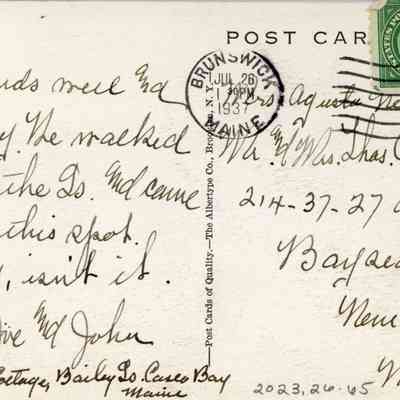 POST CAR
STATES POS
BRUNSWICK
JUL 26
1 30PM
1937
MAINE
uds well Ed
y. We walked
the Is. Ed came
this spot.
, isn't it.
ove Ed John
Cottage, Bailey Is. Casco Bay
Maine
—Post Cards of Quality.—The Albertype Co., Brooklyn, N. Y.
Mrs. Agusta Ne
Mr. Ed Mrs. Thos.
214-37-27
Baysid
New
2023.26.65